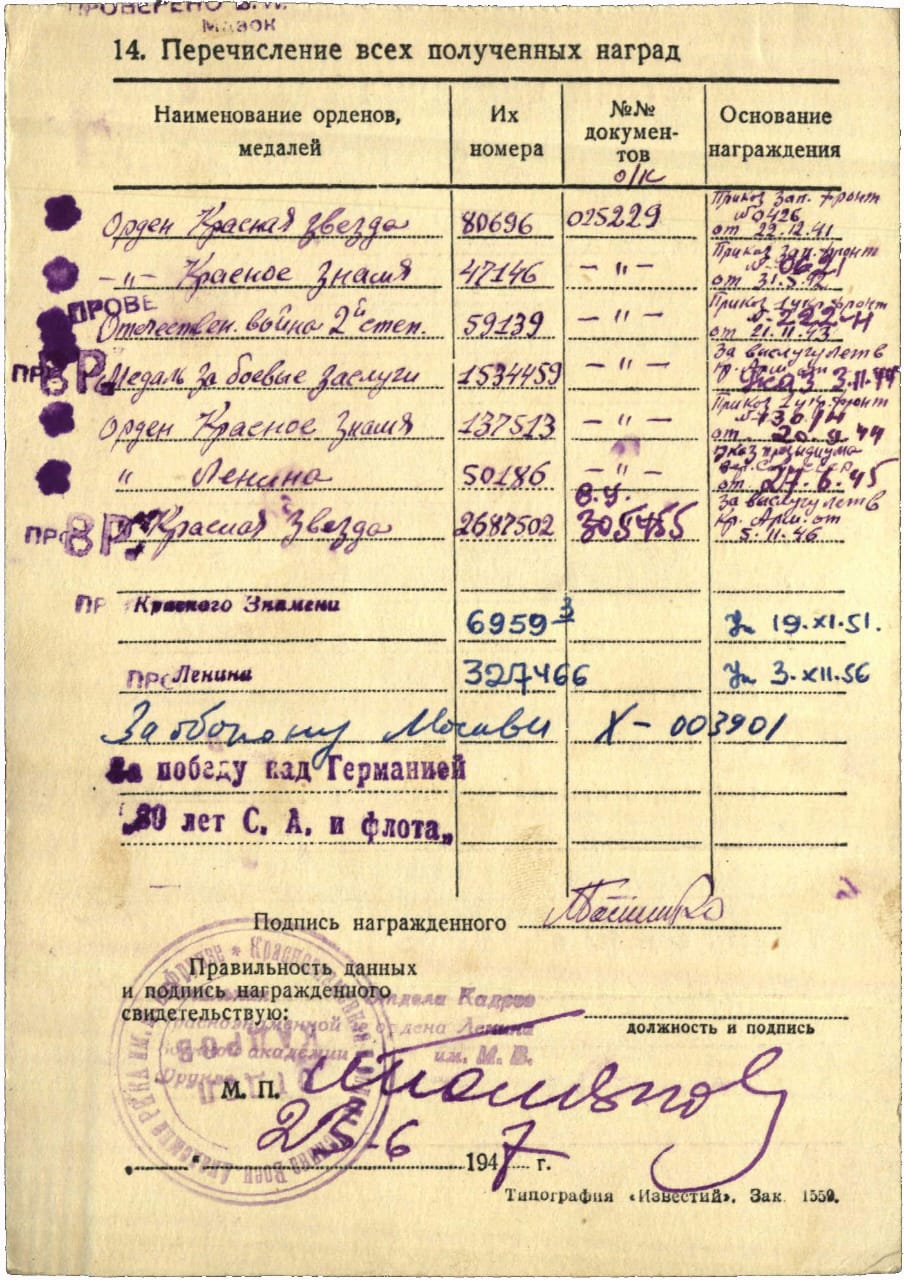 ПРОВЕРЕНО
14. Перечисление всех полученных наград
Наименование орденов, медалей
Их номера
№№ документов
о/к
Основание награждения
Орден Красная Звезда 80696 025229 Приказ Зап. фронт №0426 от 22.12.41
-"- Красное Знамя 47146 -"- Приказ Зап. фронт от 31.5.42
ПРОВЕ
Отечествен. война 2й степ. 59139 -"- Приказ 1 укр. фронт от 21.11.43
ПР ВР.
Медаль За боевые заслуги 1534459 -"- За выслугу лет в Указ 3.11.44
Орден Красное Знамя 137513 -"- Приказ 1 укр. фронт от 20.9.44
" Ленина 50186 -"- Указ президиума от 27.6.45
ПР ВР.
" Красная Звезда 2687502 в.у. 305455 За выслугу лет в Кр. Арм. от 5.11.46
ПР Красного Знамени
6959 3 Ук 19.XI.51.
ПРО Ленина 327466 Ук 3.XII.56
За оборону Москвы Х-003901
За победу над Германией
„30 лет С. А. и флота„
Подпись награжденного
Правильность данных
и подпись награжденного
свидетельствую:
Отдела Кадров
Краснознаменной ордена Ленина
академии им. М. В.
Фрунзе
должность и подпись
М. П.
25-6 1947 г.
Типография «Известий». Зак. 1559.